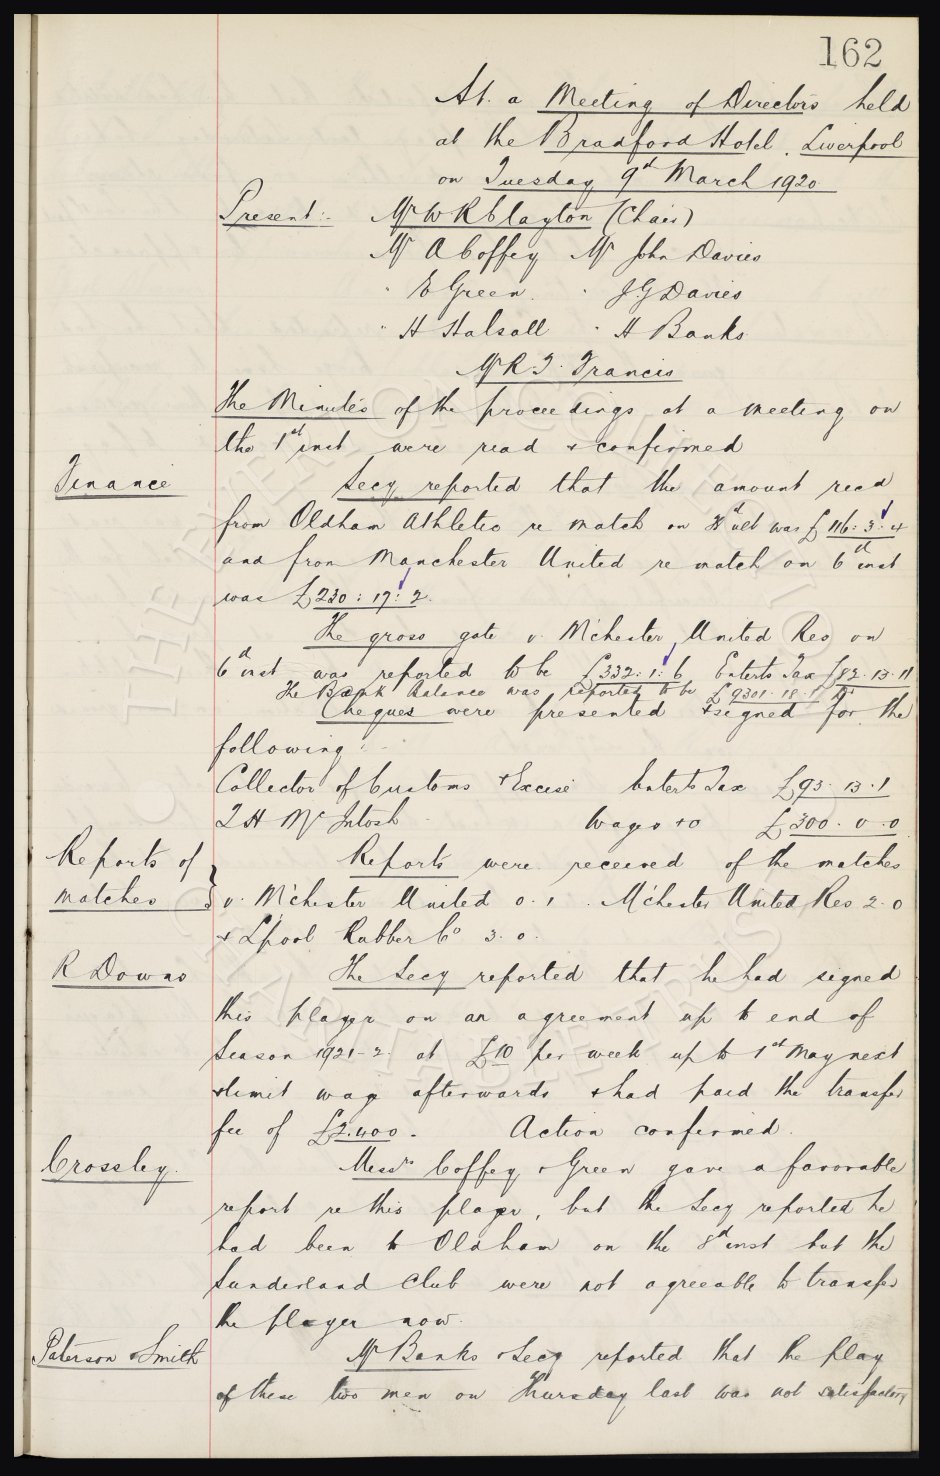 162
At a Meeting of Directors held
at the Bradford Hotel. Liverpool
on Tuesday 9th March 1920
Present:- Mr W R Clayton (Chair)
Mr A Coffey Mr John Davies
" E Green. " J.G Davies
" H Halsall " H Banks
Mr R. T. Francis
The Minutes of the proceedings at a meeting on
the 1st inst were read & confirmed
Finance
Secy reported that the amount recd
from Oldham Athletic re match on ult was £116: 3: 4
and from Manchester United re match on 6th inst
was £230: 17: 2.
The gross gate v. M'chester United Res on
6th inst was reported to be £332: 1: 6 Enterts Tax £82. 13. 11
The Bank Balance was reported to be £9301. 18.
Cheques were presented & signed for the
following:-
Collector of Customs & Excise Enterts Tax £93. 13. 1
T H McIntosh Wages &c £300. 0. 0
Reports of
matches
Reports were received of the matches
v. M'chester United 0.1. M'chester United Res 2.0
& Lpool Rubber Co 3.0.
R Downs
The Secy reported that he had signed
this player on an agreement up to end of
Season 1921-2. at £10 per week up to 1st May next
& limit wage afterwards & had paid the transfer
fee of £2.400. Action confirmed.
Crossley.
Messrs Coffey & Green gave a favorable
report re this player, but the Secy reported he
had been to Oldham on the 8th inst but the
Sunderland Club were not agreeable to transfer
the player now.
Paterson & Smith
Mr Banks & Secy reported that the play
of these two men on Thursday last was not satisfactory
THE EVERTON COLLECTION
CHARITABLE TRUST